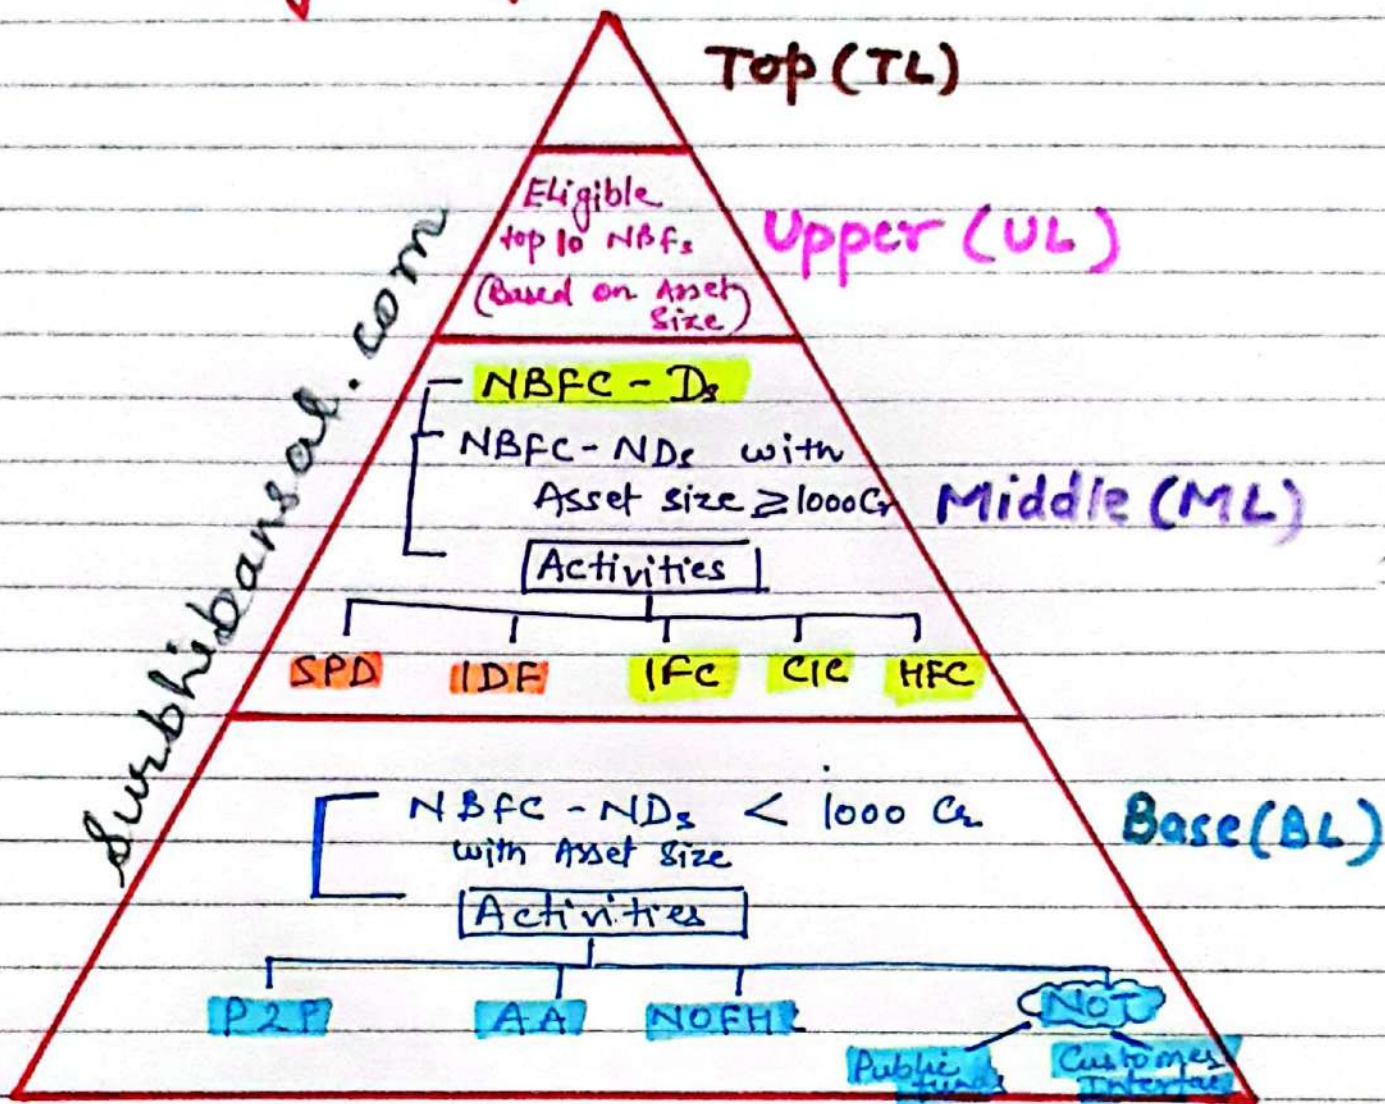 Top (TL)
Eligible
top 10 NBFs
(Based on Asset
Size)
Upper (UL)
NBFC - Ds
NBFC - NDs with
Asset size ≥ 1000 Cr
Middle (ML)
Activities
SPD IDF IFC CIC HFC
NBFC - NDs < 1000 Cr
with Asset Size
Base (BL)
Activities
P2P AA NOFHC
NOT
Public
funds
Customer
Interface
Surbhibansal.com